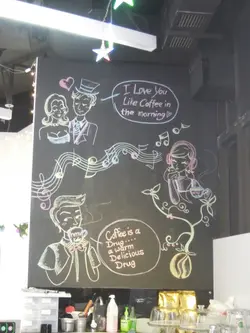 I Love You
Like Coffee in
the morning
Coffee is a
Drug....
a warm
Delicious
Drug